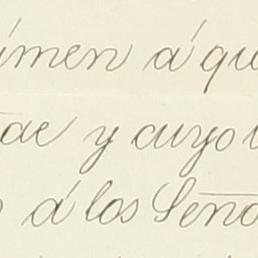 imen á qu
de y cuyo
á los Seño